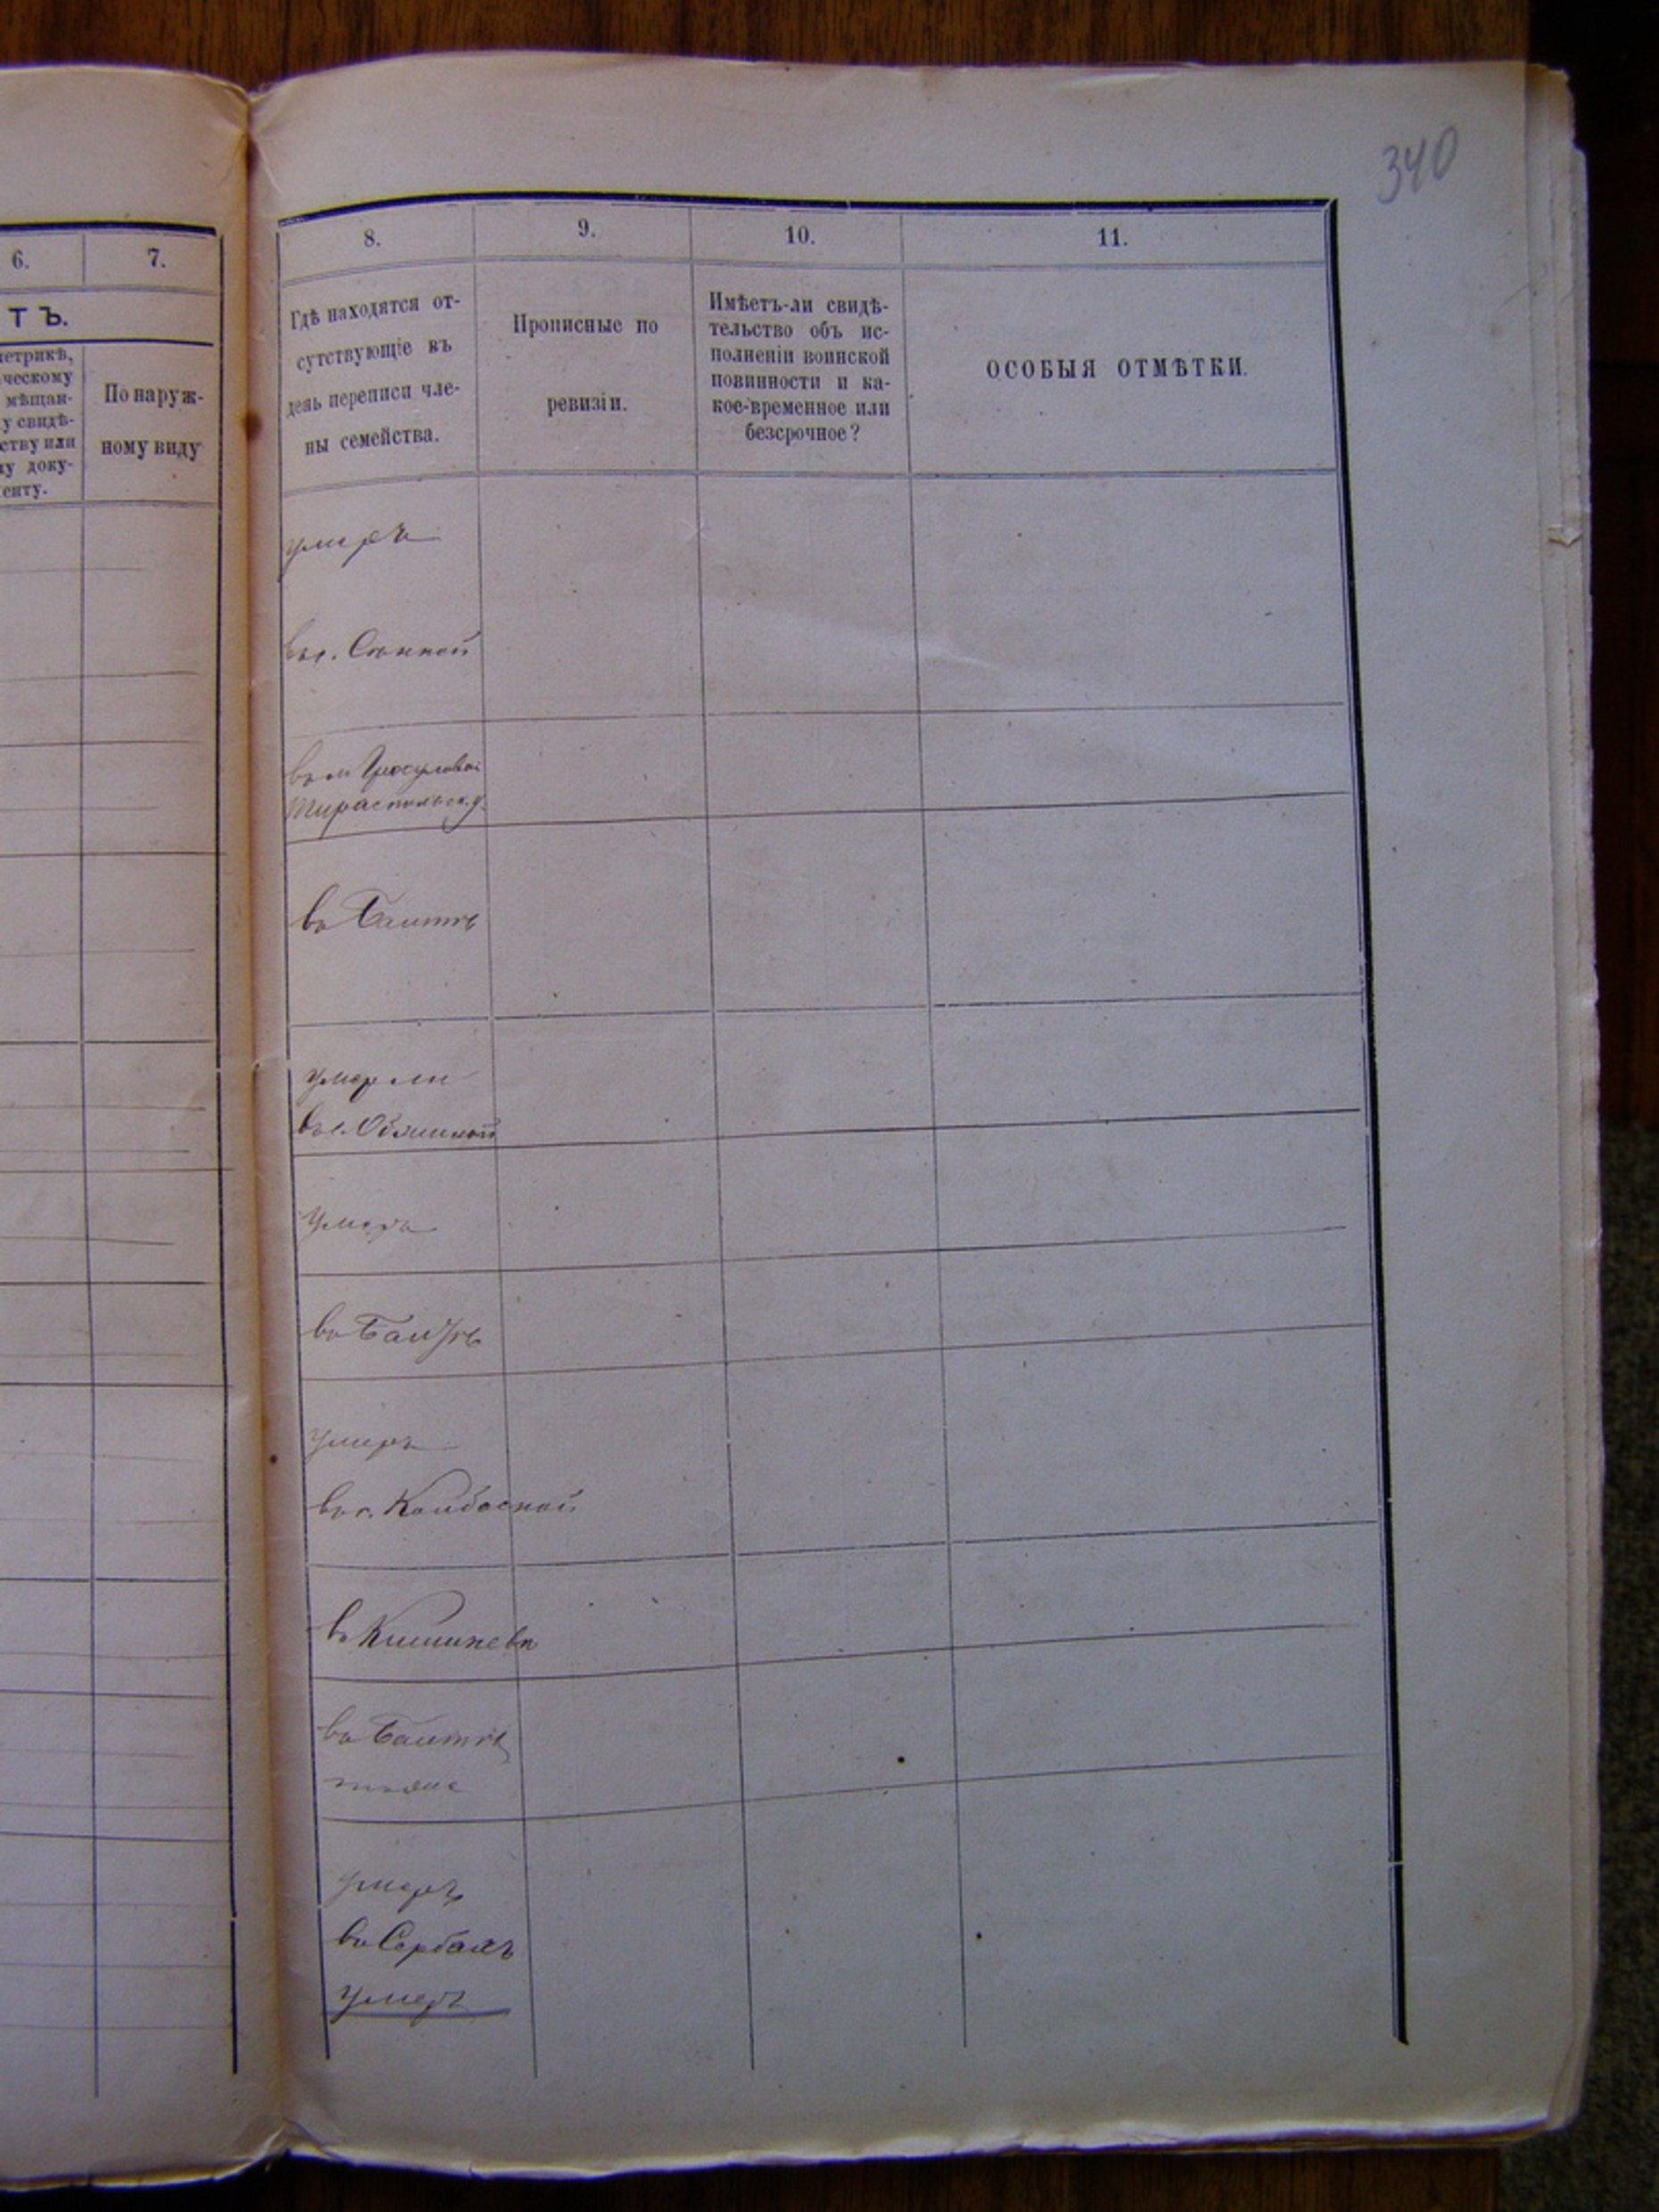 340
6.
7.
ТЪ.
метрикѣ,
ческому
мѣщан-
у свидѣ-
ству или
му доку-
менту.
По наруж-
ному виду
8.
9.
10.
11.
Гдѣ находятся от-
сутствующіе въ
день переписи чле-
ны семейства.
Прописные по
ревизіи.
Имѣетъ-ли свидѣ-
тельство объ ис-
полненіи воинской
повинности и ка-
кое-временное или
безсрочное?
ОСОБЫЯ ОТМѢТКИ.
умеръ
въ с.
въ м
Тираспольск. у.
въ Балтѣ
умерли
въ с.
умеръ
въ Балтѣ
умеръ
въ с.
въ Кишиневѣ
въ Балтѣ
тоже
умеръ
въ Сербахъ
умеръ